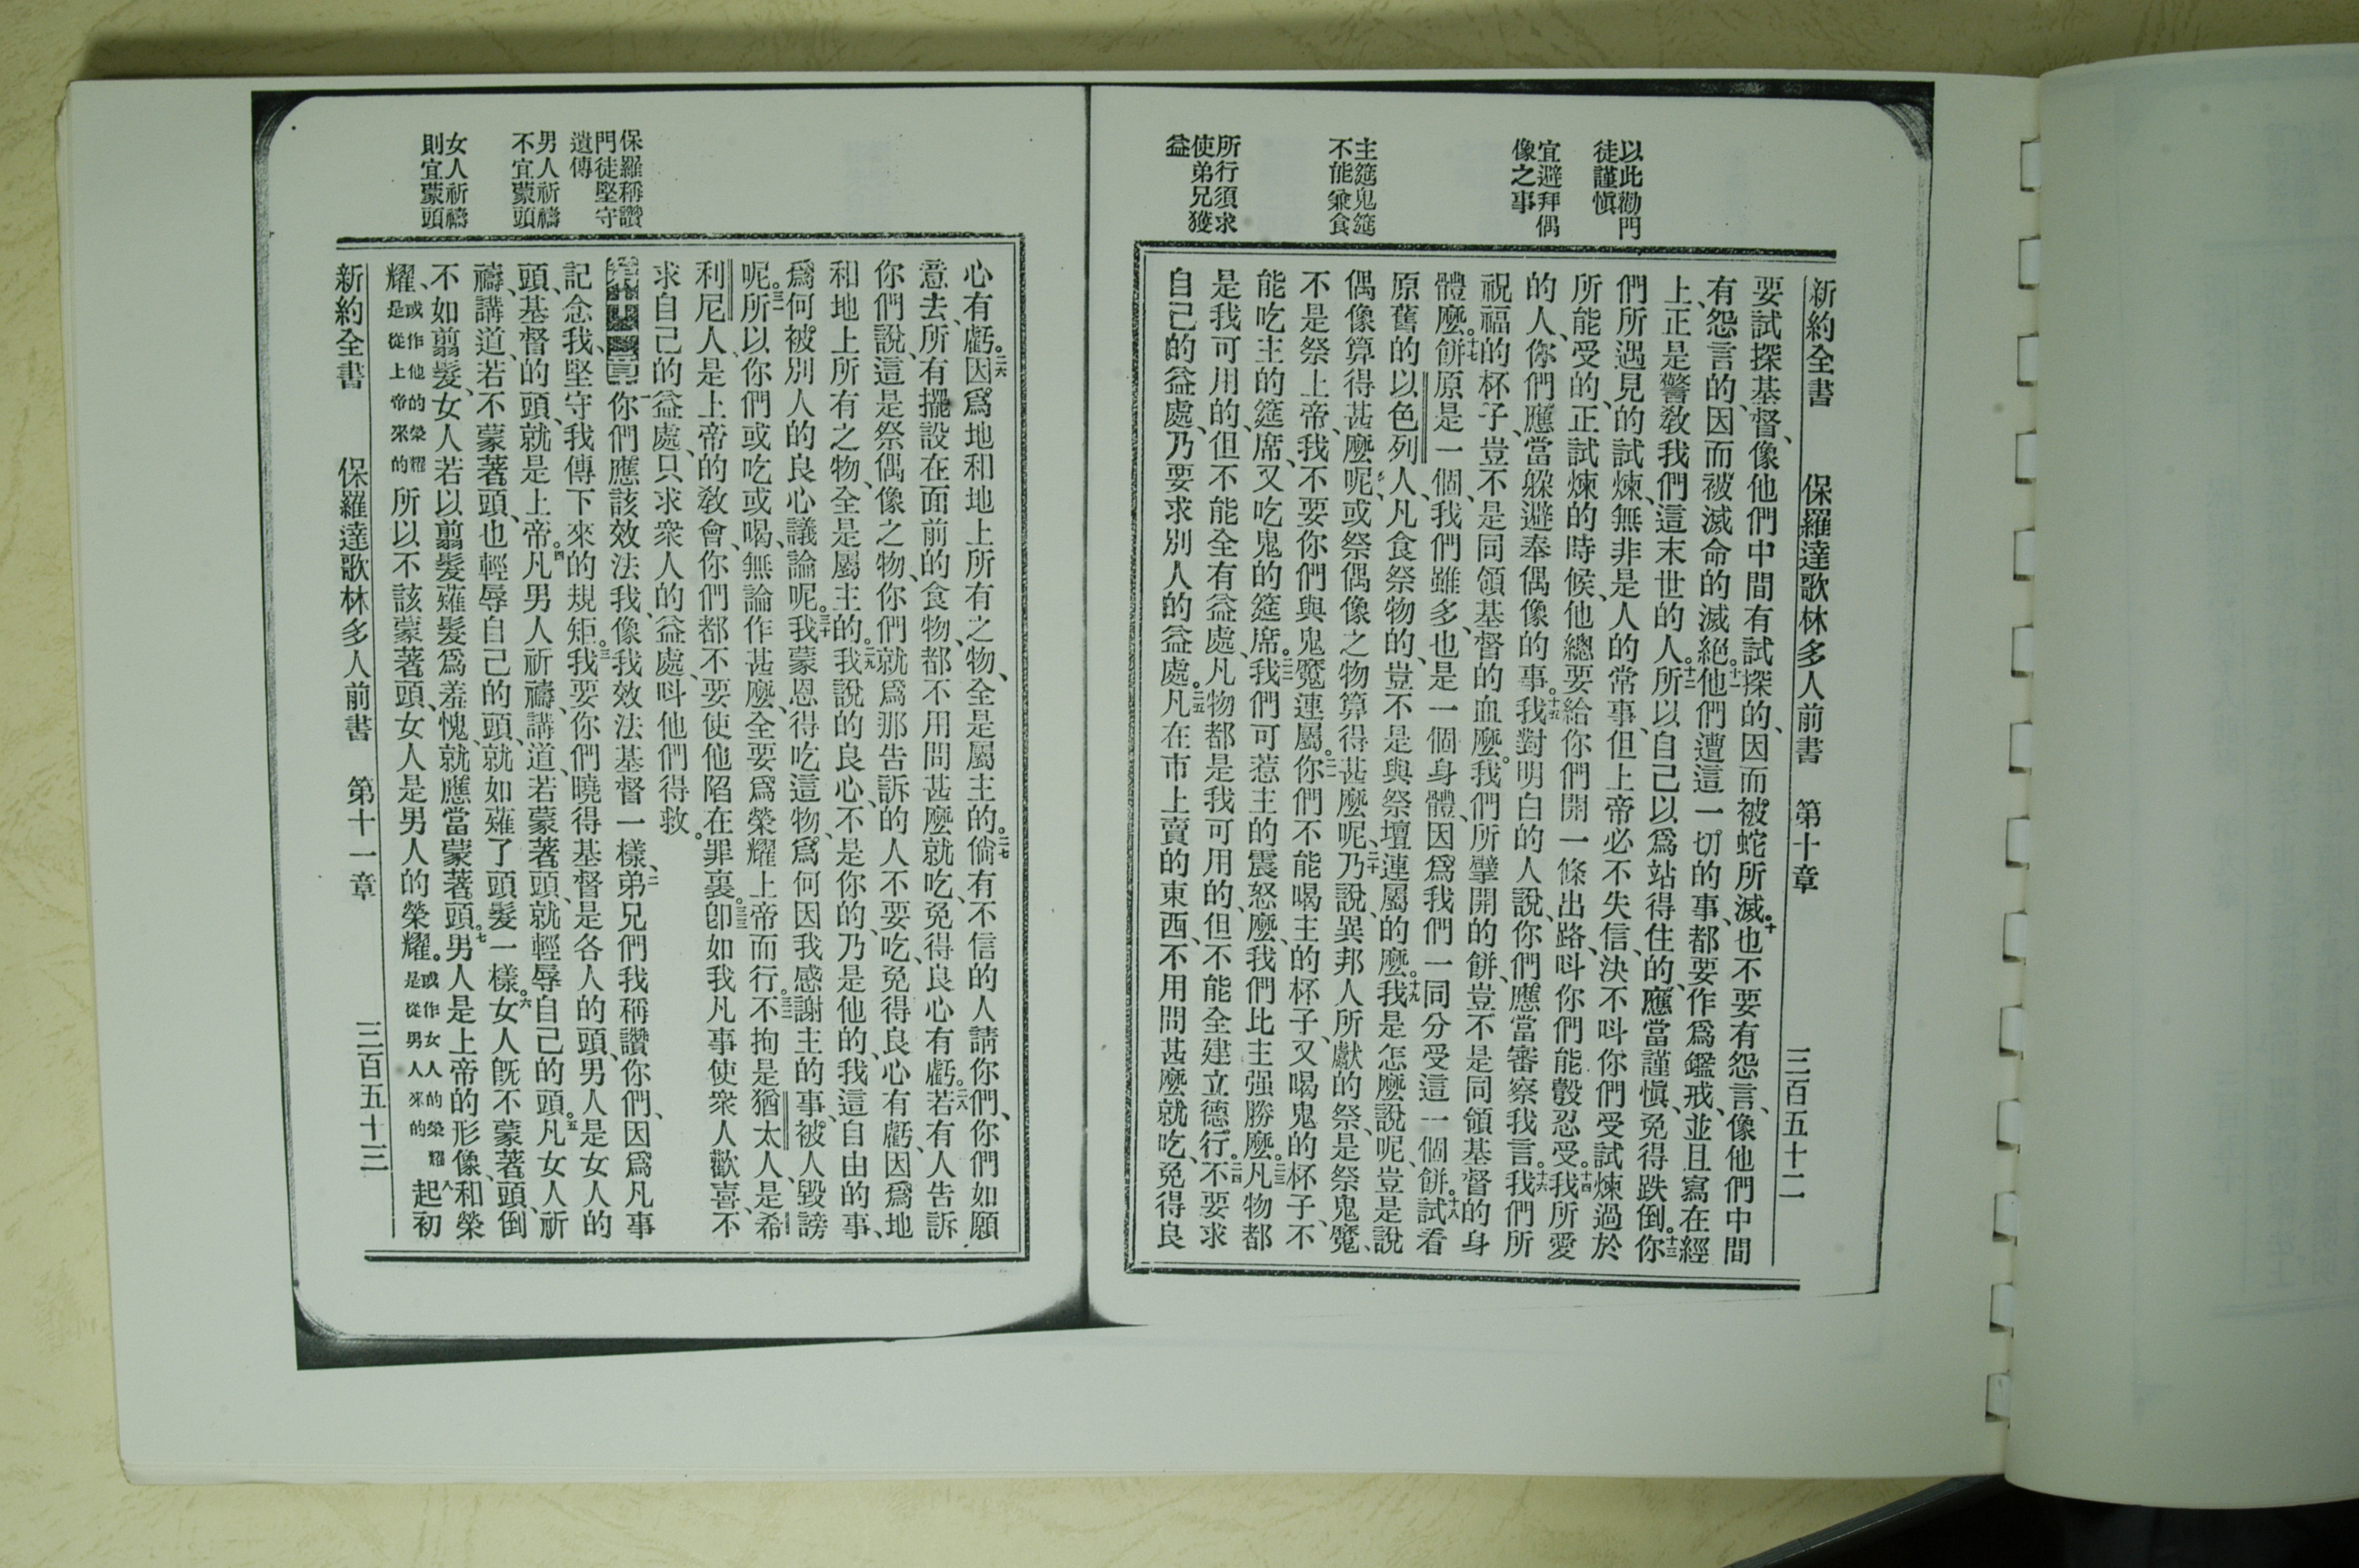 以此勸門
徒謹慎
宜避拜偶
像之事
主筵鬼筵
不能兼食
所行須求
使弟兄獲
益
新約全書 保羅達歌林多人前書 第十章 三百五十二
要試探基督、像他們中間有試探的、因而被蛇所滅。十也不要有怨言、像他們中間
有怨言的、因而被滅命的滅絕。十一他們遭這一切的事、都要作爲鑑戒、並且寫在經
上、正是警敎我們這末世的人。十二所以自己以爲站得住的、應當謹慎、免得跌倒。十三你
們所遇見的試煉、無非是人的常事、但上帝必不失信、決不呌你們受試煉過於
所能受的、正試煉的時候、他總要給你們開一條出路、呌你們能彀忍受。十四我所愛
的人、你們應當躲避奉偶像的事。十五我對明白的人說、你們應當審察我言。十六我們所
祝福的杯子、豈不是同領基督的血麼。我們所擘開的餅、豈不是同領基督的身
體麼。十七餅原是一個、我們雖多、也是一個身體、因爲我們一同分受這一個餅。十八試看
原舊的以色列人、凡食祭物的、豈不是與祭壇連屬的麼。十九我是怎麼說呢、豈是說
偶像算得甚麼呢、或祭偶像之物算得甚麼呢、二十乃說、異邦人所獻的祭、是祭鬼魔、
不是祭上帝、我不要你們與鬼魔連屬。二一你們不能喝主的杯子、又喝鬼的杯子、不
能吃主的筵席、又吃鬼的筵席。二二我們可惹主的震怒麼、我們比主强勝麼。二三凡物都
是我可用的、但不能全有益處、凡物都是我可用的、但不能全建立德行。二四不要求
自己的益處、乃要求別人的益處。二五凡在市上賣的東西、不用問甚麼就吃、免得良
保羅稱讚
門徒堅守
遺傳
男人祈禱
不宜蒙頭
女人祈禱
則宜蒙頭
心有虧。二六因爲地和地上所有之物、全是屬主的。二七倘有不信的人請你們、你們如願
意去、所有擺設在面前的食物、都不用問甚麼就吃、免得良心有虧。二八若有人告訴
你們說、這是祭偶像之物、你們就爲那告訴的人不要吃、免得良心有虧、因爲地
和地上所有之物、全是屬主的。二九我說的良心、不是你的、乃是他的、我這自由的事、
爲何被別人的良心議論呢。三十我蒙恩得吃這物、爲何因我感謝主的事、被人毀謗
呢。三一所以你們或吃或喝、無論作甚麼、全要爲榮耀上帝而行。三二不拘是猶太人、是希
利尼人、是上帝的敎會、你們都不要使他陷在罪裏。三三卽如我凡事使衆人歡喜、不
求自己的益處、只求衆人的益處、呌他們得救。
一你們應該效法我、像我效法基督一樣、二弟兄們我稱讚你們、因爲凡事
記念我、堅守我傳下來的規矩。三我要你們曉得基督是各人的頭、男人是女人的
頭、基督的頭、就是上帝。四凡男人祈禱、講道、若蒙著頭、就輕辱自己的頭。五凡女人祈
禱、講道、若不蒙著頭、也輕辱自己的頭、就如薙了頭髮一樣。六女人旣不蒙著頭、倒
不如翦髮、女人若以翦髮薙髮爲羞愧、就應當蒙著頭。七男人是上帝的形像、和榮
耀、或作他的榮耀是從上帝來的所以不該蒙著頭、女人是男人的榮耀。或作女人的榮耀是從男人來的八起初
新約全書 保羅達歌林多人前書 第十一章 三百五十三